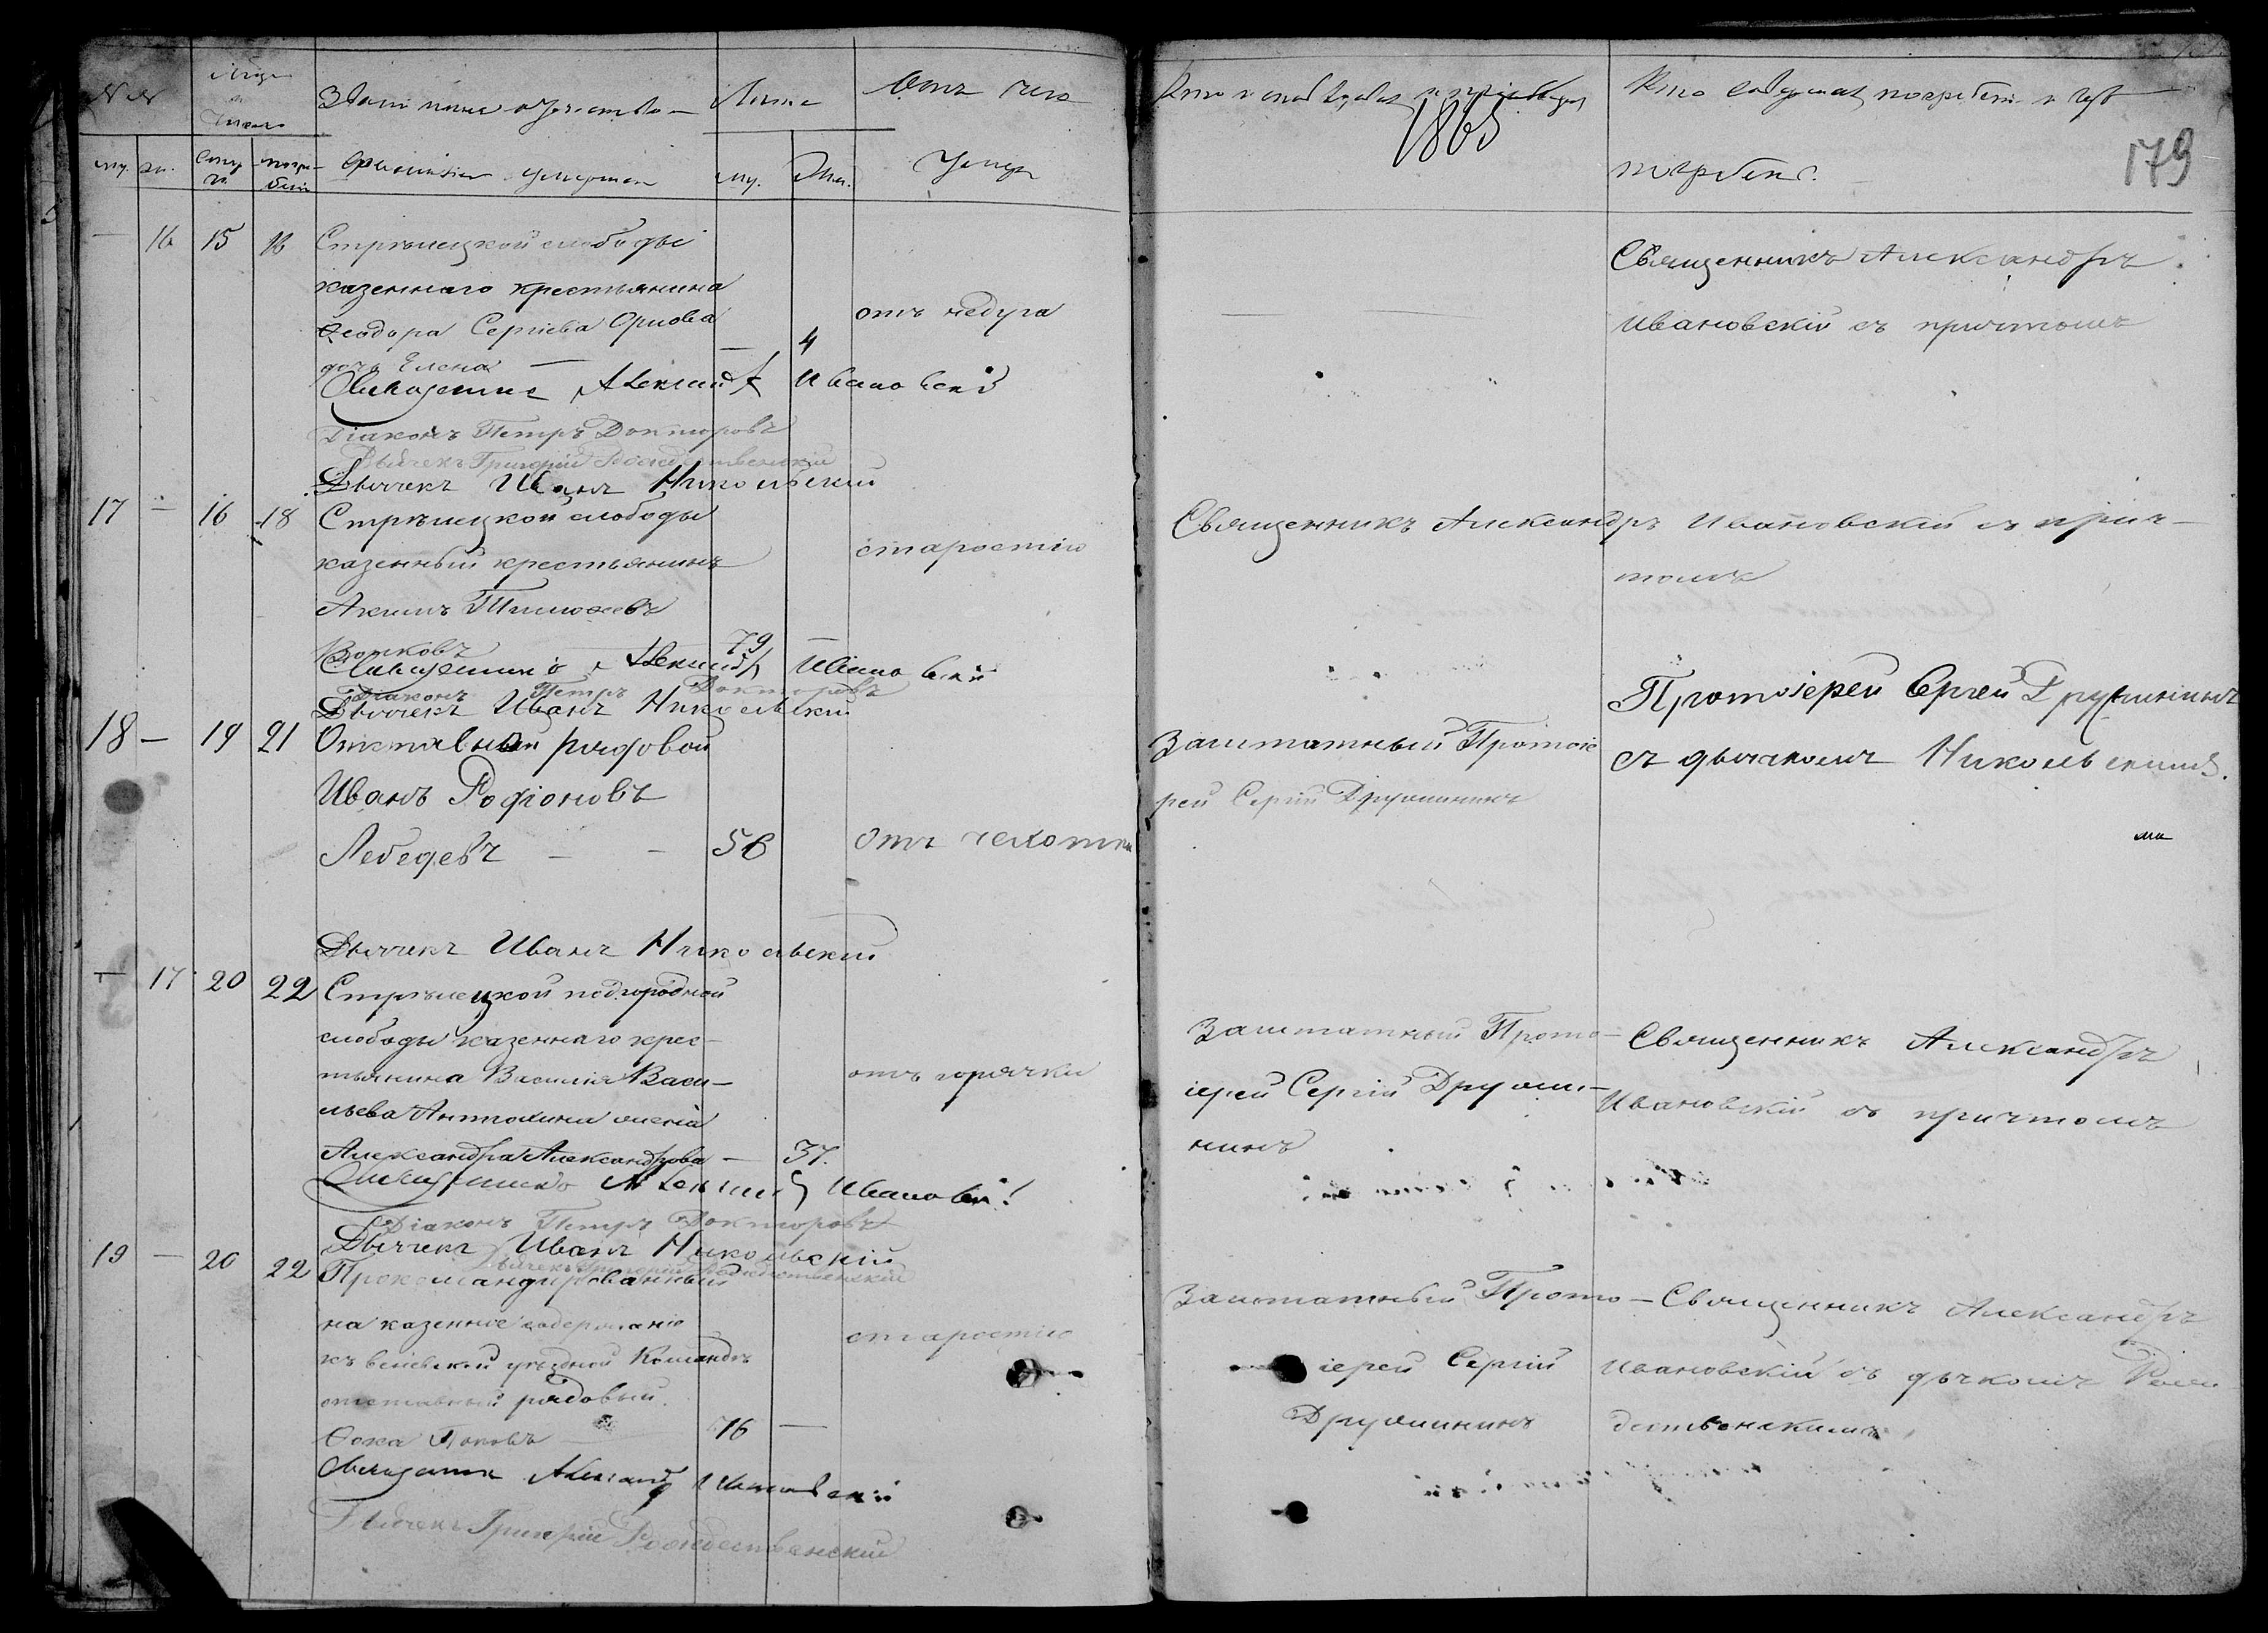 Лѣта
Отъ чего
1865
179
му.
Умеръ
16 15 16 Стрѣлецкой слободы
казеннаго крестьянина
Ѳеодора Сергіева Орлова
дочь Елена — 4
отъ недуга
Священникъ Александръ
Ивановскій съ причтомъ
Священникъ Александръ Ивановскій
Діаконъ Петръ Докторовъ
Дьячекъ Григорій Рождественскій
Дьячекъ Иванъ Никольскій
17 — 16 18 Стрѣлецкой слободы
казенный крестьянинъ
Акимъ Тимофеевъ
79 —
старостію
Священникъ Александръ Ивановскій съ прич-
томъ
Священникъ Александръ Ивановскій
Діаконъ Петръ Докторовъ
Дьячекъ Иванъ Никольскій
18 — 19 21 Отставной рядовой
Иванъ Родіоновъ
Лебедевъ — — 56
Отъ чехотки
Заштатный Протоіе
рей Сергій Дружининъ
Протоіерей Сергей Дружининъ
съ дьячкомъ Никольскимъ.
Дьячекъ Иванъ Никольскій
— 17 20 22 Стрѣлецкой подгородной
слободы казеннаго крес-
тьянина Василія Васи-
льева Антюхина жена
Александра Александрова — 37.
отъ горячки
Заштатный Прото-
іерей Сергій Дружи-
нинъ
Священникъ Александръ
Ивановскій съ причтомъ
Священникъ Александръ Ивановскій
Діаконъ Петръ Докторовъ
Дьячекъ Иванъ Никольскій
Дьячекъ Григорій Рождественскій
19 — 20 22 Прокомандированный
на казенное содержаніе
къ Белевской уѣздной Командѣ
отставный рядовый
Фока Поповъ — 76 —
старостію
Заштатный Прото-
іерей Сергій
Дружининъ
Священникъ Александръ
Ивановскій съ дьячкомъ Рож-
дественскимъ
Священникъ Александръ Ивановскій
Дьячекъ Григорій Рождественскій